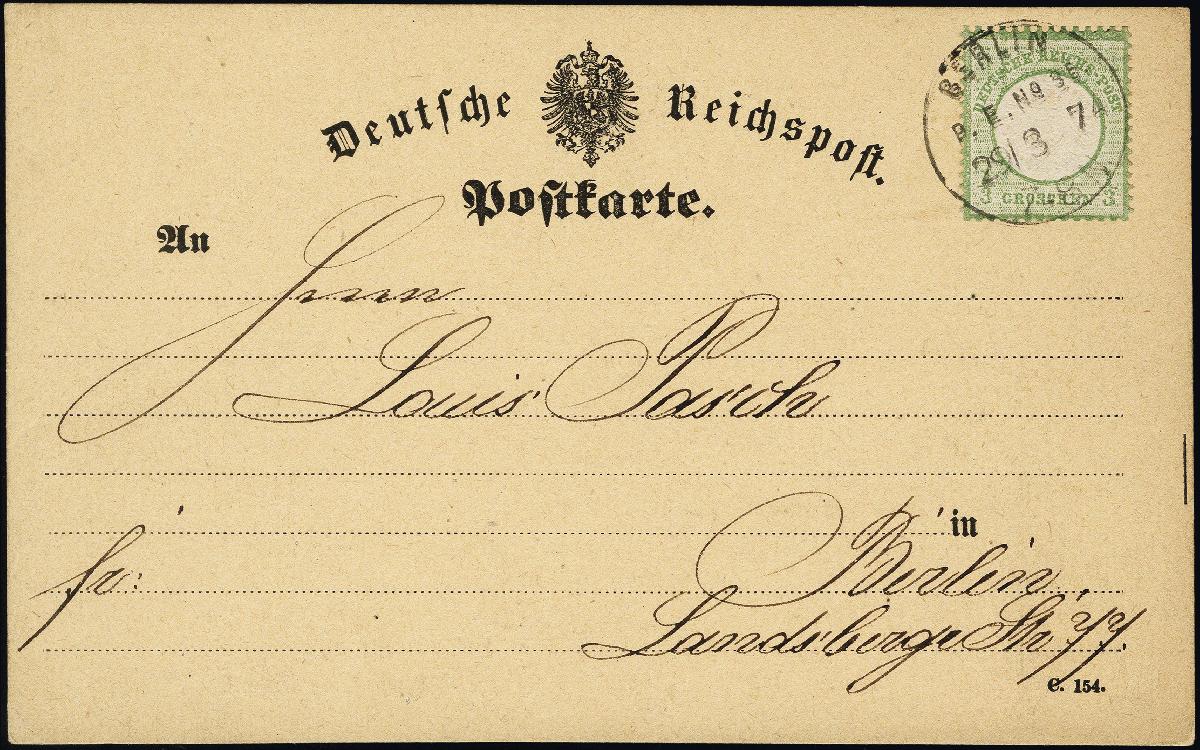 Deutsche Reichspost.
Postkarte.
BERLIN
P. E. No 36
29/3 74
DEUTSCHE REICHS-POST
GROSCHEN
An
Herrn
Louis Pasch
in
fr:
Berlin,
Landsberge Str 77.
C. 154.